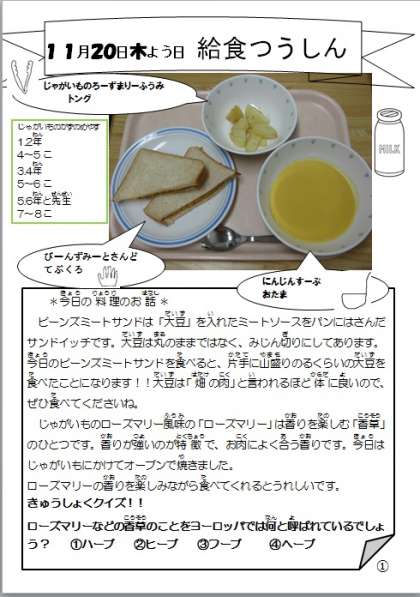 11月20日木よう日 給食つうしん
じゃがいものろーずまりーふうみ
トング
じゃがいものかずのめやす
1.2年
4～5こ
3.4年
5～6こ
5.6年と先生
7～8こ
MILK
びーんずみーとさんど
てぶくろ
にんじんすーぷ
おたま
＊今日の料理のお話＊
ビーンズミートサンドは「大豆」を入れたミートソースをパンにはさんだ
サンドイッチです。大豆は丸のままではなく、みじん切りにしてあります。
今日のビーンズミートサンドを食べると、片手に山盛りのるくらいの大豆を
食べたことになります！！大豆は「畑の肉」と言われるほど体に良いので、
ぜひ食べてくださいね。
じゃがいものローズマリー風味の「ローズマリー」は香りを楽しむ「香草」
のひとつです。香りが強いのが特徴で、お肉によく合う香りです。今日は
じゃがいもにかけてオーブンで焼きました。
ローズマリーの香りを楽しみながら食べてくれるとうれしいです。
きゅうしょくクイズ！！
ローズマリーなどの香草のことをヨーロッパでは何と呼ばれているでしょ
う？ ①ハーブ ②ヒーブ ③フーブ ④ヘーブ
①